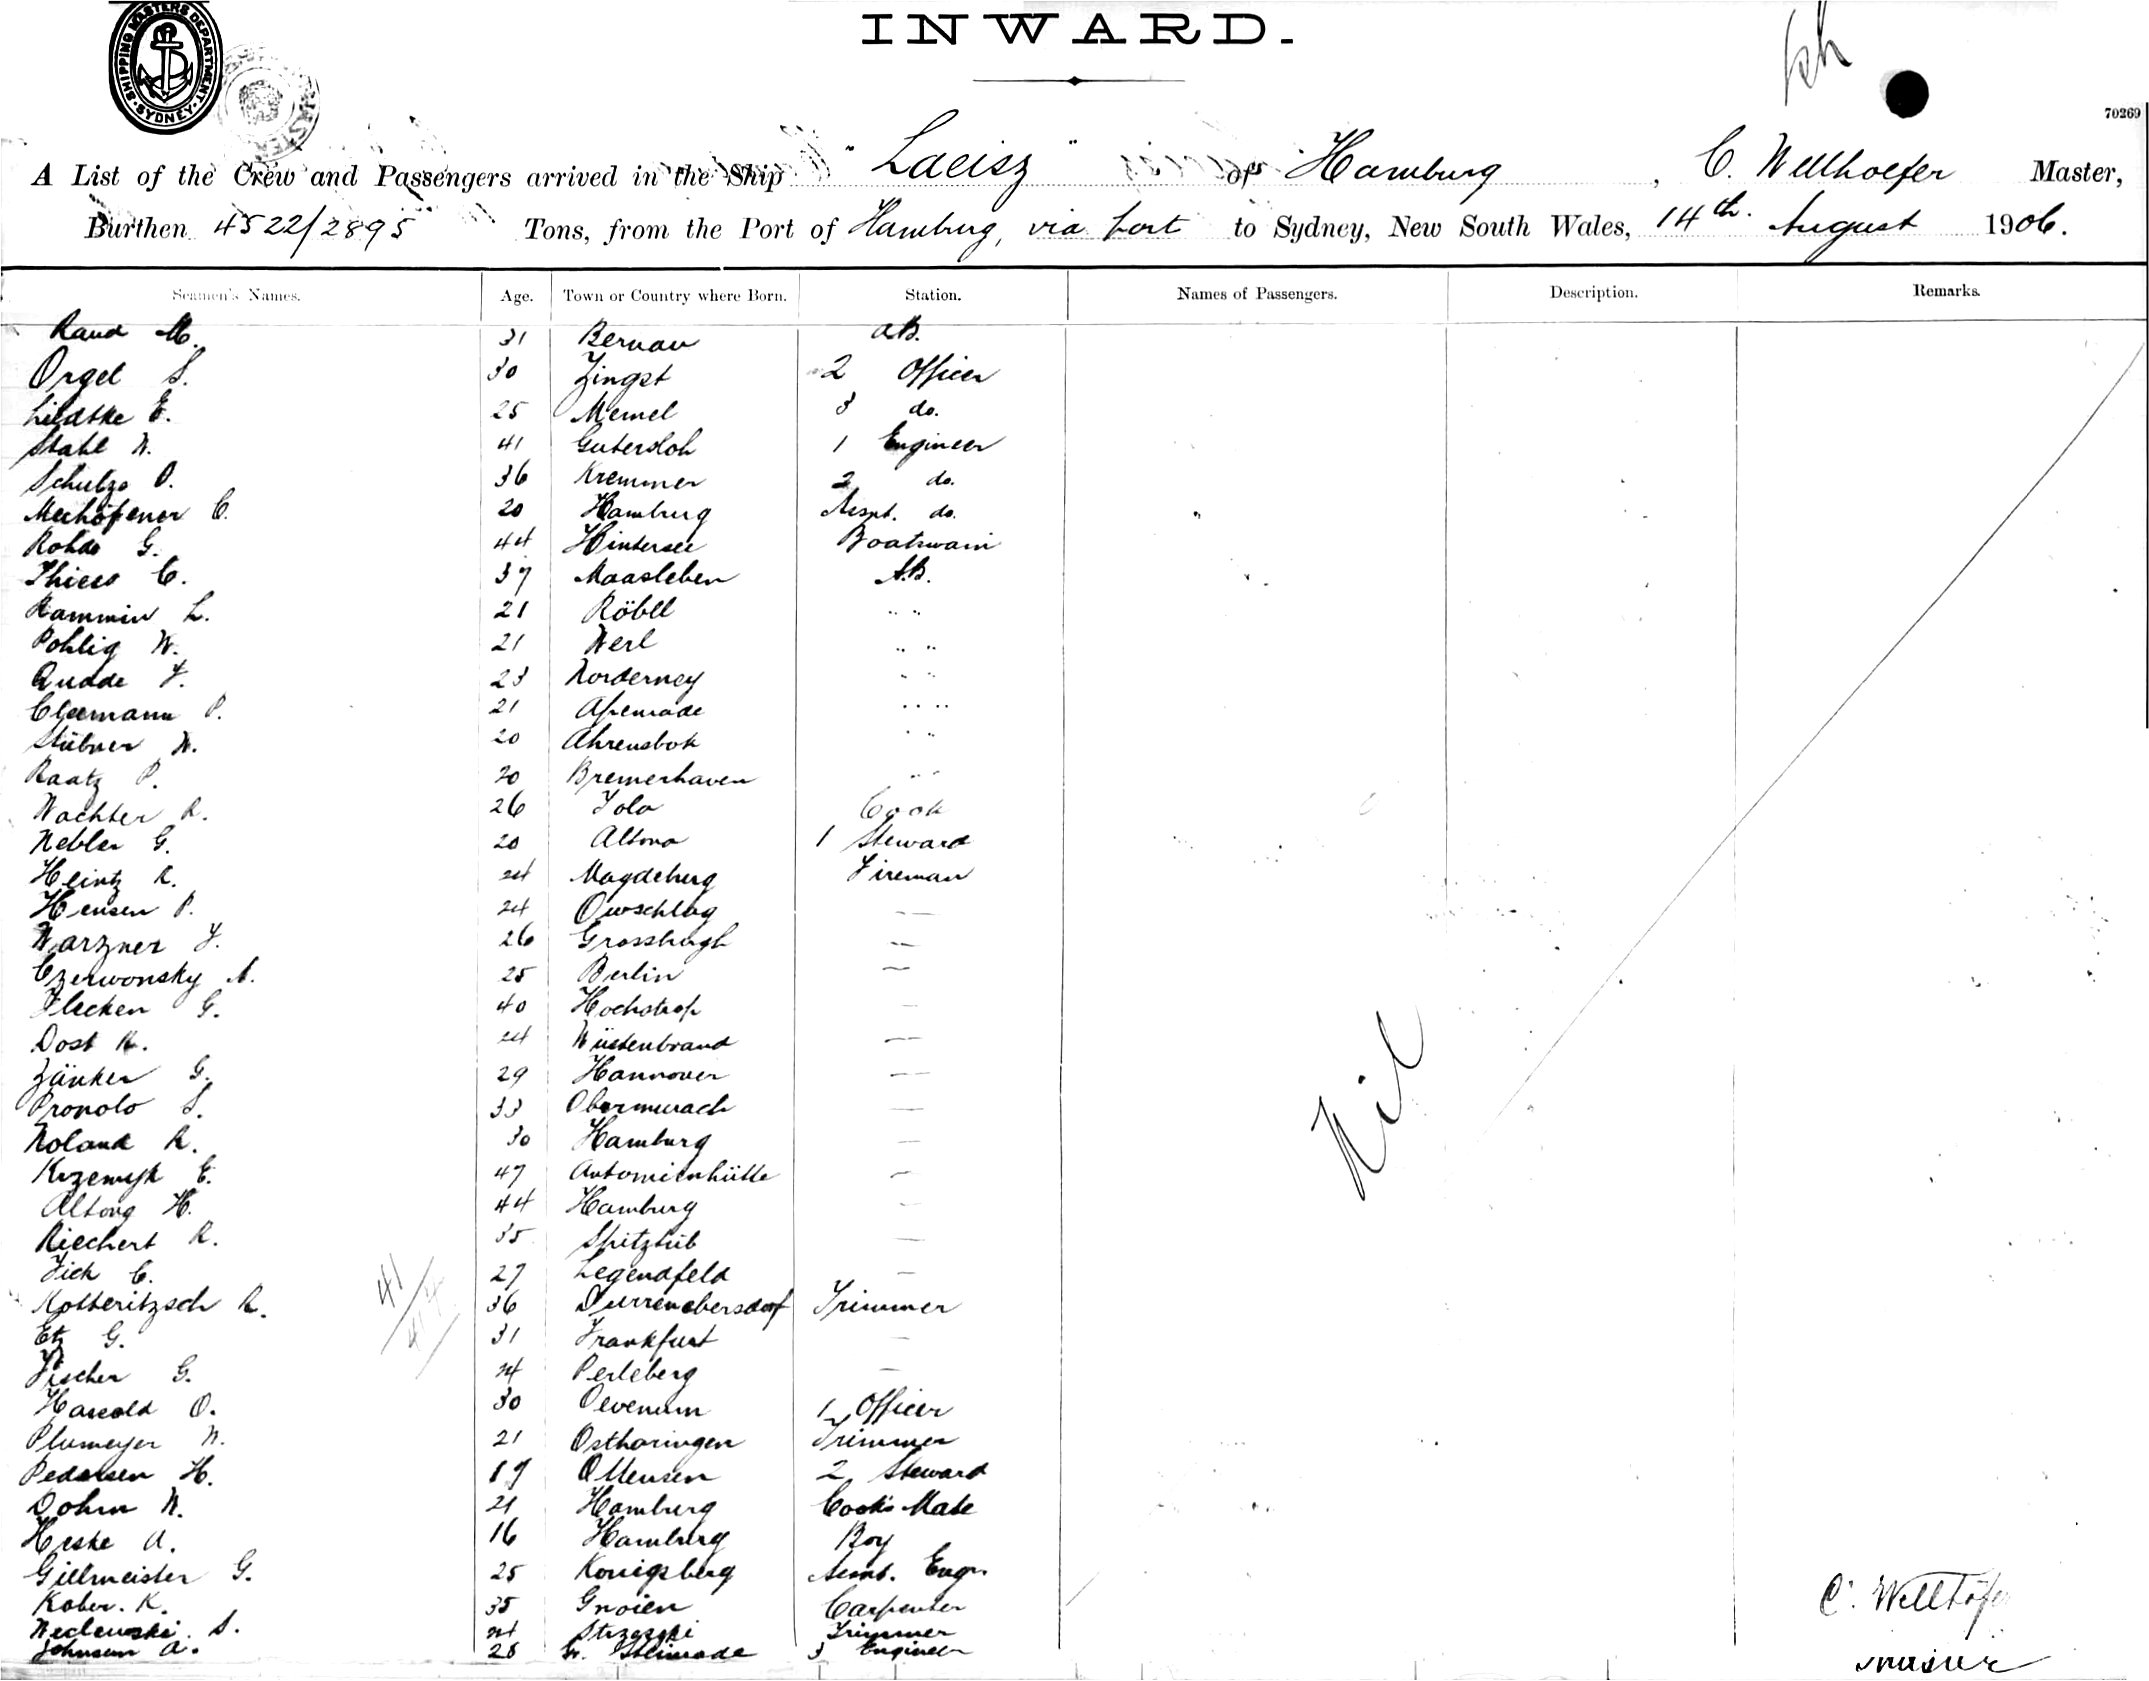 INWARD.
SHIPPING MASTERS DEPARTMENT
SYDNEY
70269
A List of the Crew and Passengers arrived in the Ship "Laeisz" of Hamburg, C. Wellhoefer Master,
Burthen 4522/2895 Tons, from the Port of Hamburg, via port to Sydney, New South Wales, 14th. August 1906.
Seamen's Names. Age. Town or Country where Born. Station. Names of Passengers. Description. Remarks.
Raud M. 31 Bernau A.B.
Orgel S. 30 Zingst 2 Officer
Liedtke E. 25 Memel 3 do.
Stahl W. 41 Gutersloh 1 Engineer
Schulze O. 36 Kremmer 2 do.
Meihöfener C. 20 Hamburg Assnt. do.
Rohde G. 44 Hintersee Boatswain
Thiess C. 37 Maasleben A.B.
Rammin L. 21 Röbel " "
Pohlig W. 21 Werl " "
Qudde F. 23 Norderney " "
Cleemann P. 21 Apenrade " "
Stübner W. 20 Ahrensbok " "
Raatz P. 20 Bremerhaven " "
Wachter R. 26 Cook
Nebler G. 20 Altona 1 Steward
Heintz R. 24 Magdeburg Fireman
Hensen P. 24 Owschlag —
Warzner J. 26 —
Czerwonsky A. 25 Berlin —
Flecken G. 40 —
Dost R. 24 Wüstenbrand —
Zänker G. 29 Hannover —
Pronolo S. 33 Obermurach —
Noland R. 30 Hamburg —
E. 47 Antonienhütte —
Altong H. 44 Hamburg —
Riechert R. 35 —
Fick C. 27 Legendfeld —
Kotteritzsch R. 36 Durrenebersdorf Trimmer
41
Etz G. 31 Frankfurt —
Fischer G. 24 Perleberg —
O. 30 Oevenum 1 Officer
Plumeyer W. 21 Ostharingen Trimmer
Pedersen H. 19 Ottensen 2 Steward
Dohrn W. 21 Hamburg Cook's Mate
Heske A. 16 Hamburg Boy
Gillmeister G. 25 Konigsberg Assnt. Engr.
Kober. K. 35 Gnoien Carpenter
S. 24 Trimmer
Johnsen A. 28 Gr. Steinrade 3 Engineer
Nil
C. Wellhöfer
master